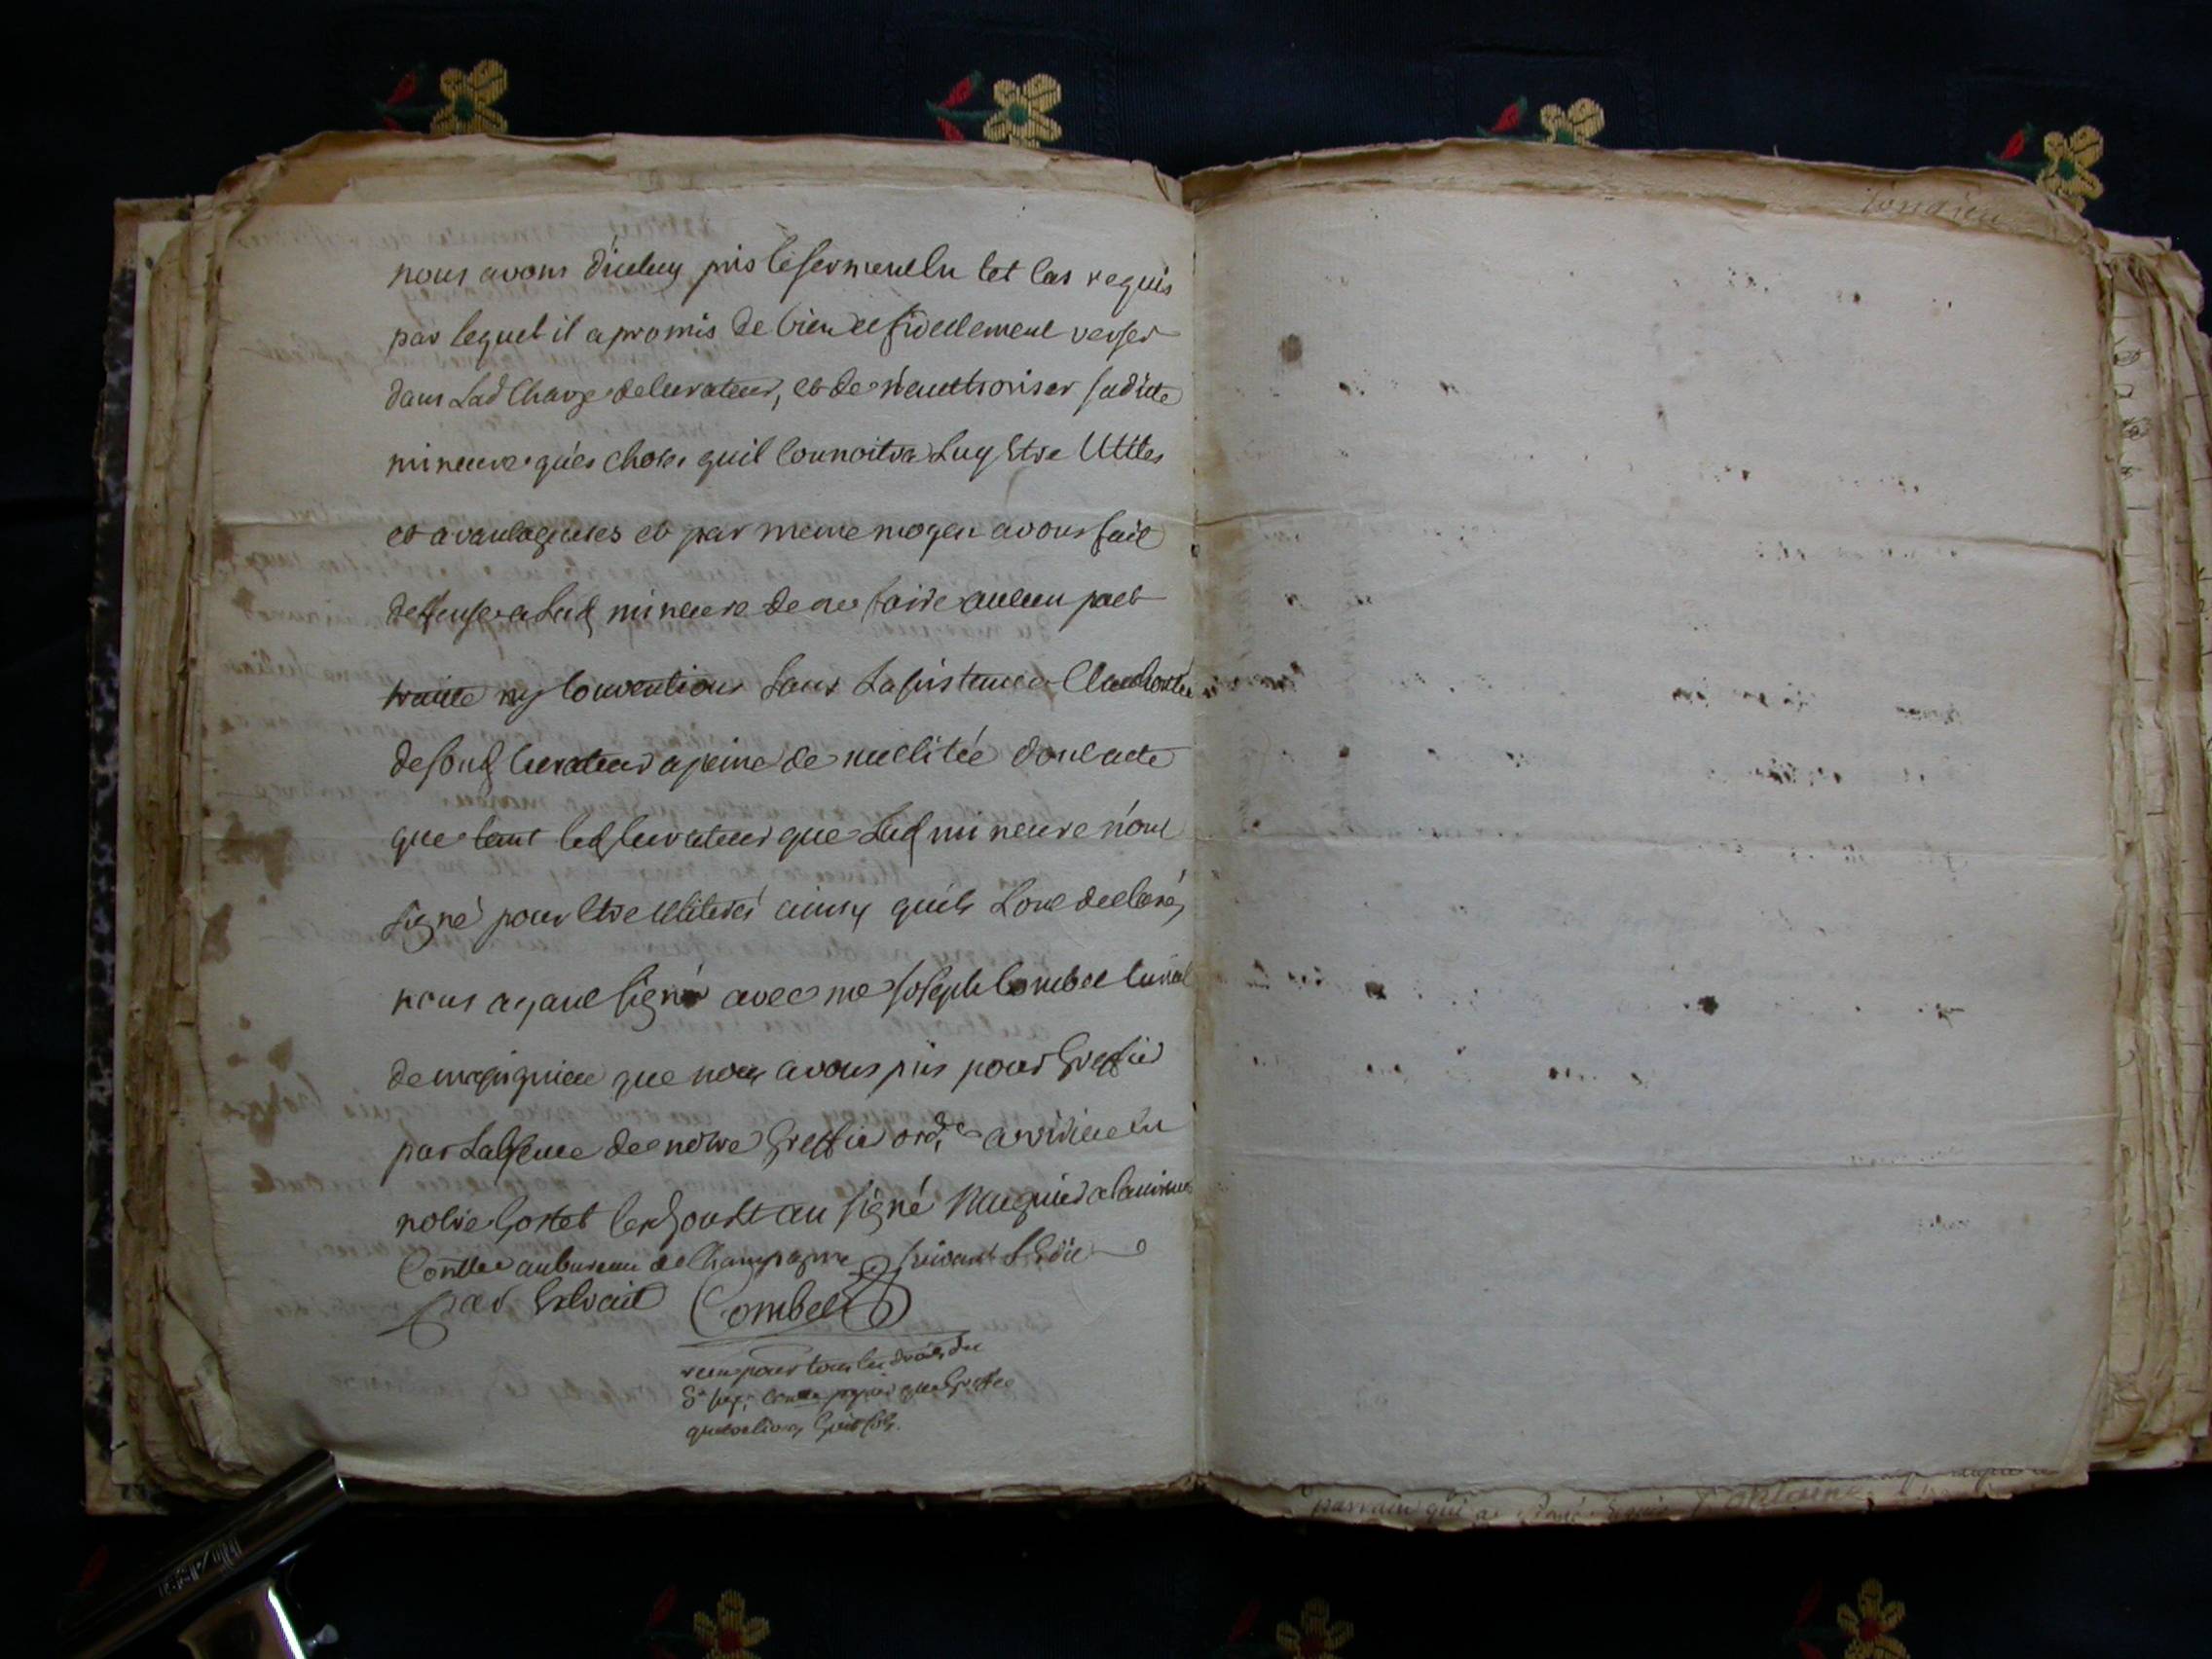 nous avons d'iceluy pris le serment en tel cas requis
par lequel il a promis de bien et fidellement verser
dans Lad Charge de Curateur, et de n'authoriser sadite
mineure qu'es choses quil Connoitra Luy Etre Utiles
et avantageuses et par meme moyen avons fait
deffense a Lad mineure de ne faire aucun pact
traitte ny Conventions sans Lasistance Et authorité
de sond Curateur a peine de nullitée dont acte
que tant led Curateur que Lad mineure n'ont
signé pour Etre illiterés ainsy quils Lont declaré,
nous ayant signé avec me Joseph Combet Curial
de que nous avons pris pour Greffier
par Labsence de notre Greffier ord.re a virieu en
notre hostel led jour et an signé a la minute
Conllé au bureau de Champagne suivant L'Edit
par Extrait Combet
receu pour tous les droits du
que Greffe
quatre livres huit sols.
parrain qui a Antoine